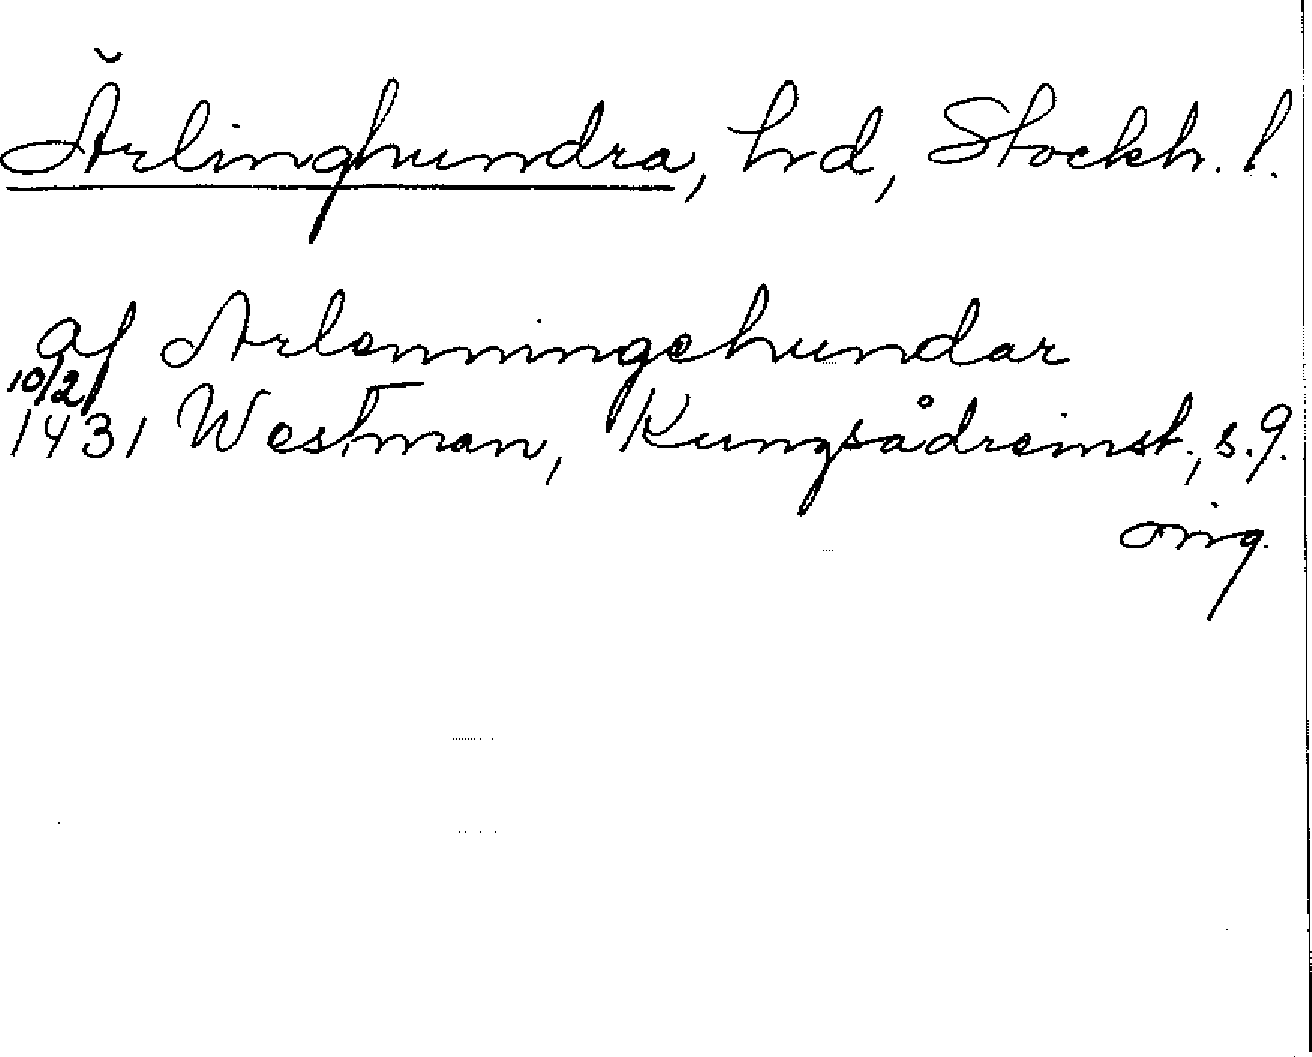 Ärlinghundra, hrd, Stockh. l.
af Arlenningehundar
10/2 1431 Westman, Kungsådreinst., s. 9.
orig.